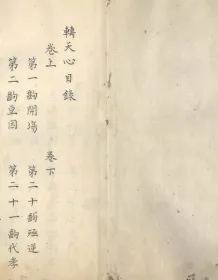 轉天心目錄
卷上
卷下
第一齣開場
第二十齣極運
第二齣皇因
第二十一齣代孝